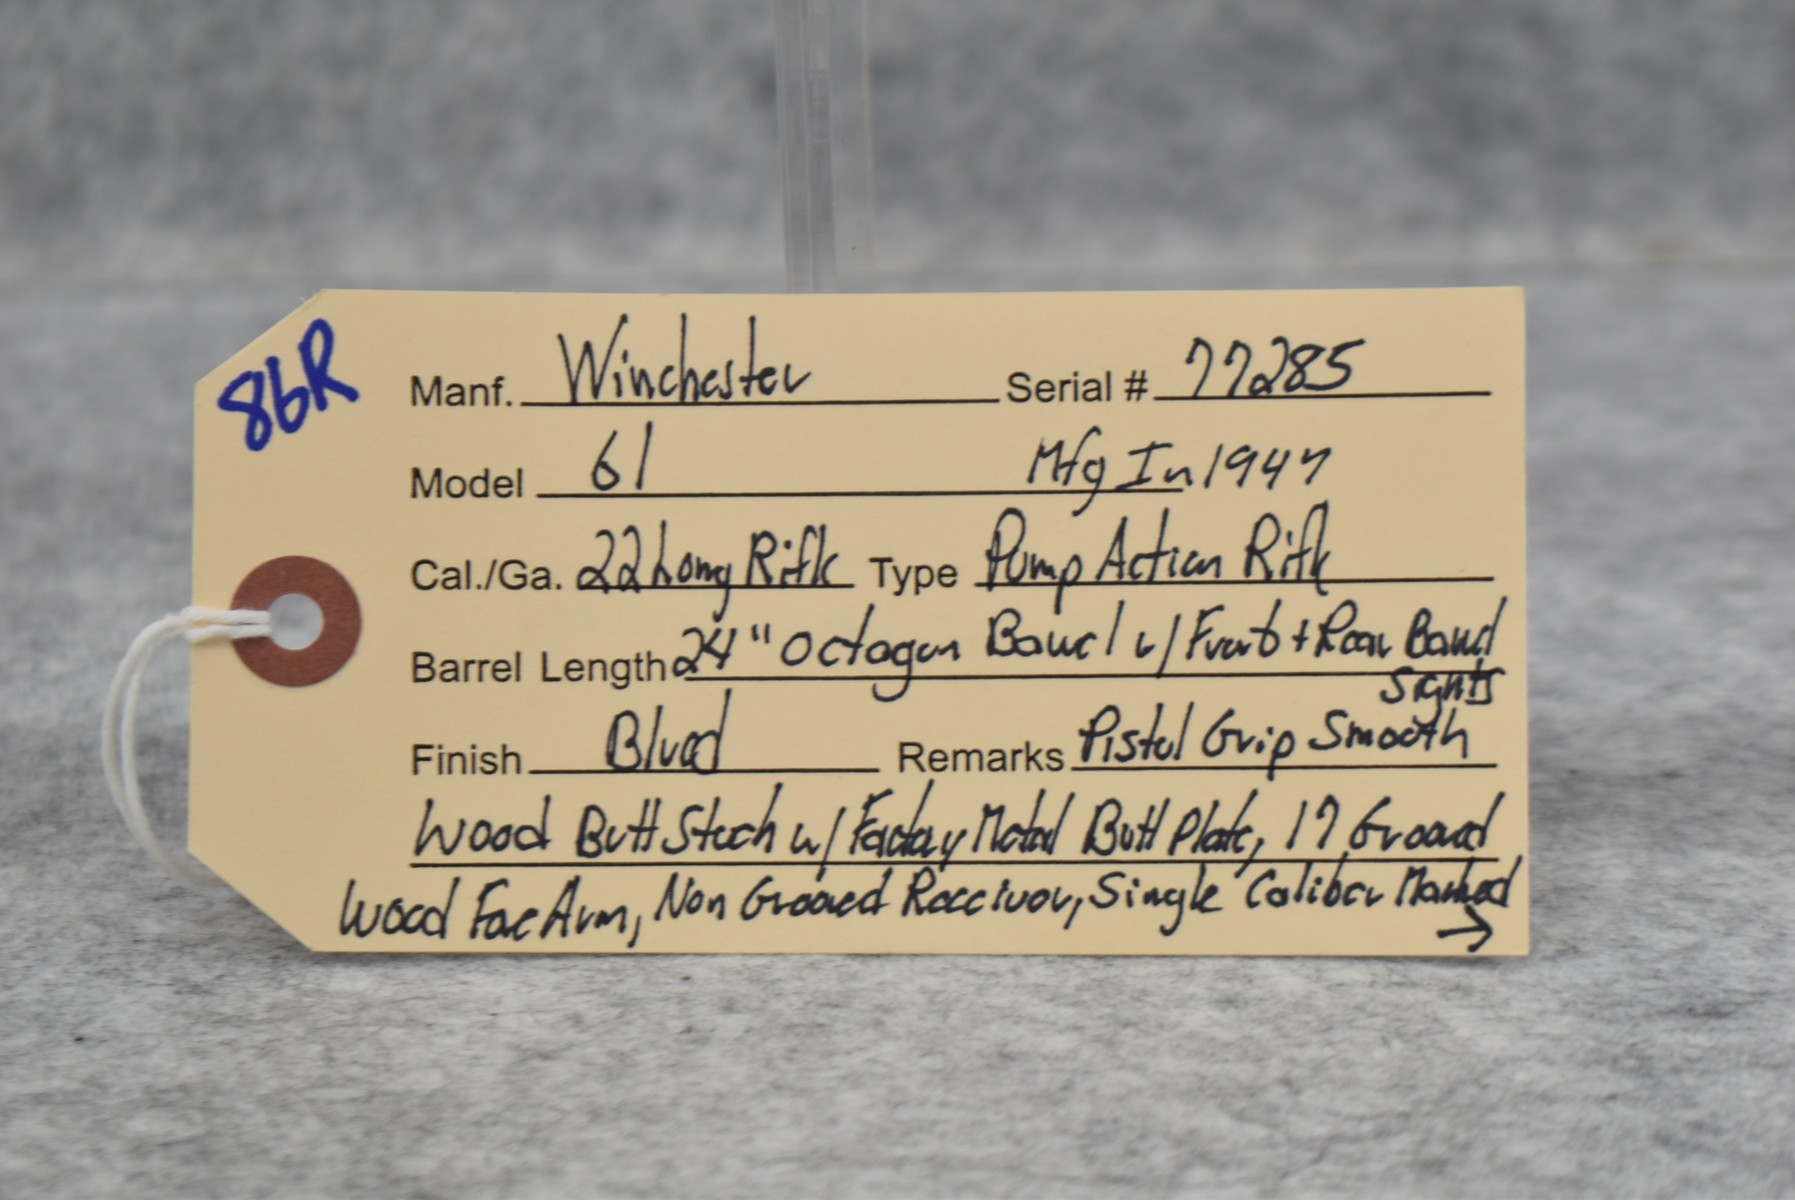 86R
Manf. Winchester Serial # 77285
Model 61 Mfg In 1947
Cal./Ga. 22 Long Rifle Type Pump Action Rifle
Barrel Length 24" Octagon Barrel w/ Front + Rear Barrel
Sights
Finish Blued Remarks Pistol Grip Smooth
Wood Butt Stock w/ Factory Metal Butt Plate, 17 Grooved
Wood ForeArm, Non Grooved Receiver, Single Caliber Marked
→